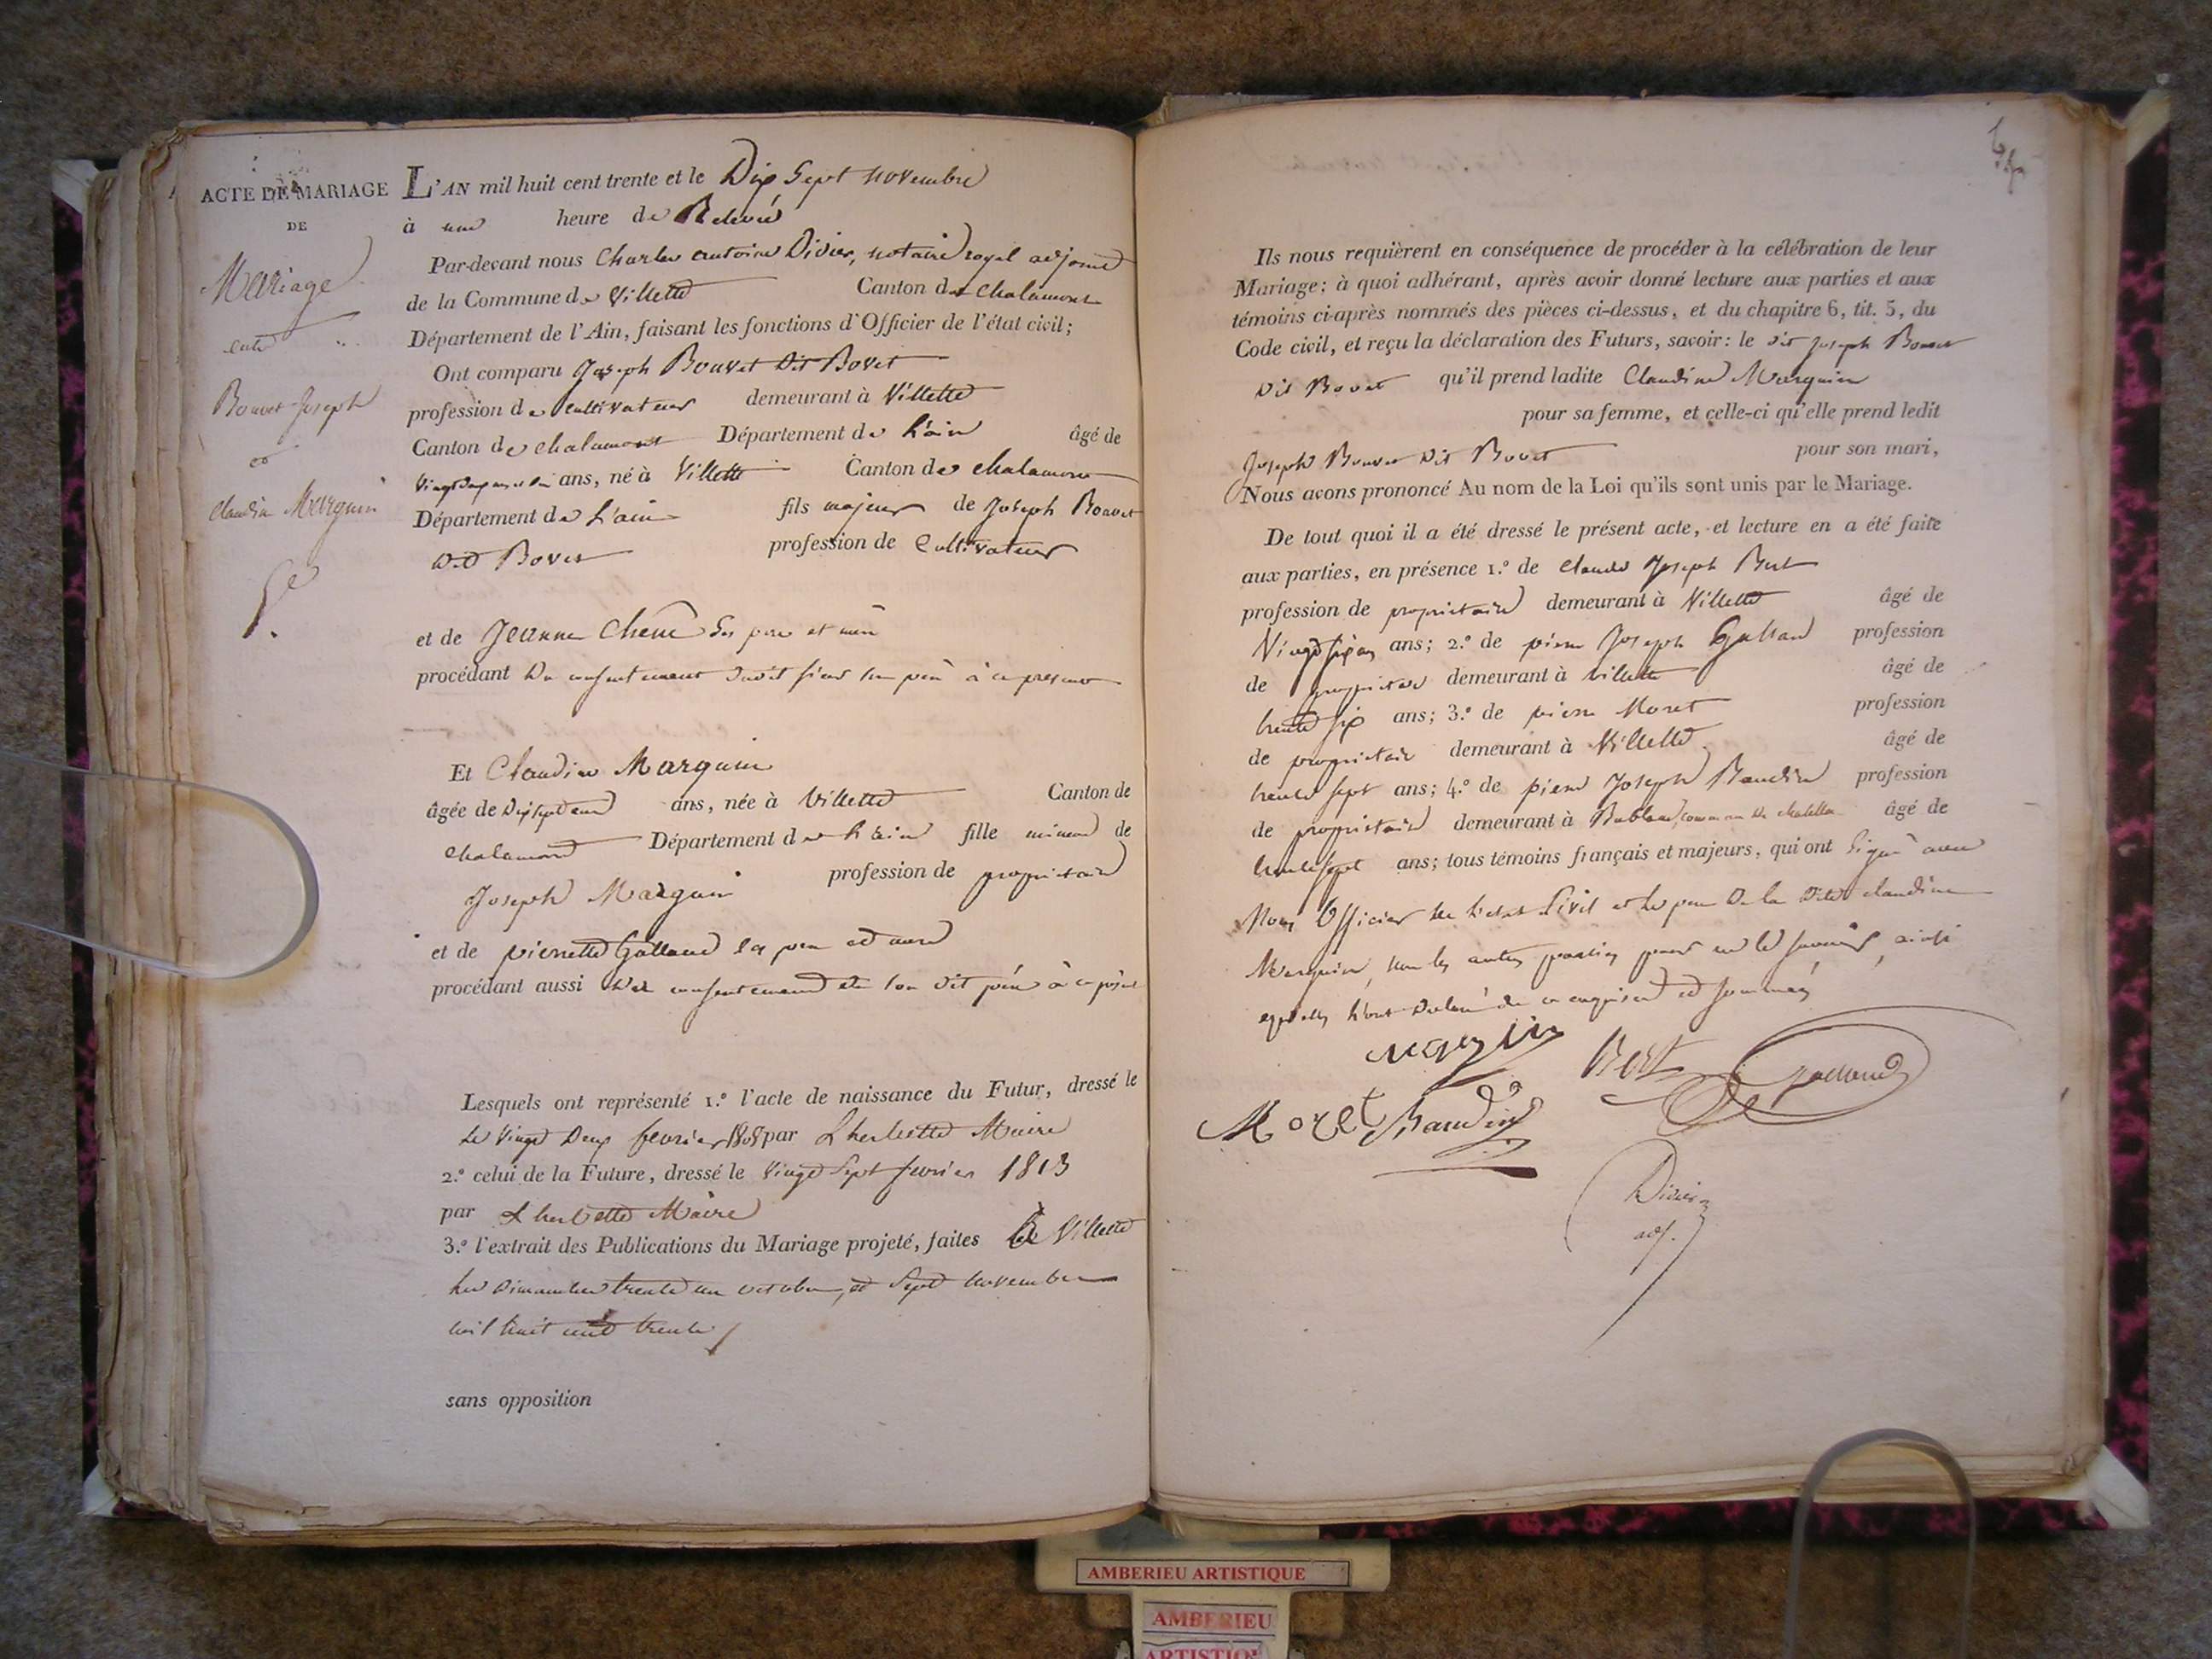 ACTE DE MARIAGE
DE
Mariage
entre
Bouvet Joseph
et
Claudine Marguin
L'AN mil huit cent trente et le Dix Sept novembre
à une heure de Relevée
Par-devant nous Charles antoine Divier, notaire royal adjoint
de la Commune de Villette Canton de Chalamont
Département de l'Ain, faisant les fonctions d'Officier de l'état civil;
Ont comparu Joseph Bouvet Dit Bovet
profession de Cultivateur demeurant à Villette
Canton de Chalamont Département de L'ain âgé de
ans, né à Villette Canton de Chalamont
Département de L'ain fils majeur de Joseph Bouvet
Dit Bovet profession de Cultivateur
et de Jeanne Chene Ses pere et mere
procédant Du consentement dudit sieur son père à ce present
Et Claudine Marguin
âgée de Dixsept ans, née à Villette Canton de
Chalamont Département de L'ain fille mineure de
Joseph Marguin profession de propriétaire
et de pierrette Galland ses pere et mere
procédant aussi Du consentement de son dit père à ce présent
Lesquels ont représenté 1.º l'acte de naissance du Futur, dressé le
Le Vingt Deux fevrier 1808 par Lherbette Maire
2.º celui de la Future, dressé le Vingt Sept fevrier 1813
par Lherbette Maire
3.º l'extrait des Publications du Mariage projeté, faites à Villette
les Dimanches trente un octobre, et Sept novembre
mil huit cent trente
sans opposition
Ils nous requièrent en conséquence de procéder à la célébration de leur
Mariage; à quoi adhérant, après avoir donné lecture aux parties et aux
témoins ci-après nommés des pièces ci-dessus, et du chapitre 6, tit. 5, du
Code civil, et reçu la déclaration des Futurs, savoir: le dit Joseph Bouvet
Dit Bovet qu'il prend ladite Claudine Marguin
pour sa femme, et celle-ci qu'elle prend ledit
Joseph Bouvet Dit Bovet pour son mari,
Nous avons prononcé Au nom de la Loi qu'ils sont unis par le Mariage.
De tout quoi il a été dressé le présent acte, et lecture en a été faite
aux parties, en présence 1.º de Claude Joseph Bert
profession de propriétaire demeurant à Villette âgé de
Vingt six ans; 2.º de pierre Joseph Galland profession
de propriétaire demeurant à Villette âgé de
trente six ans; 3.º de pierre Moret profession
de propriétaire demeurant à Villette âgé de
trente sept ans; 4.º de pierre Joseph Baudin profession
de propriétaire demeurant à Bublane, commune de Chatillon âgé de
trente sept ans; tous témoins français et majeurs, qui ont signé avec
Nous Officier de l'etat Civil et le pere De la Dite Claudine
Marguin, non les autres parties pour ne le savoir, ainsi
qu'elles l'ont declaré de ce enquises et sommées
Marguin
Bert
Galland
Moret
Baudin
Divier
adj.
AMBERIEU ARTISTIQUE
AMBERIEU
ARTISTIQ